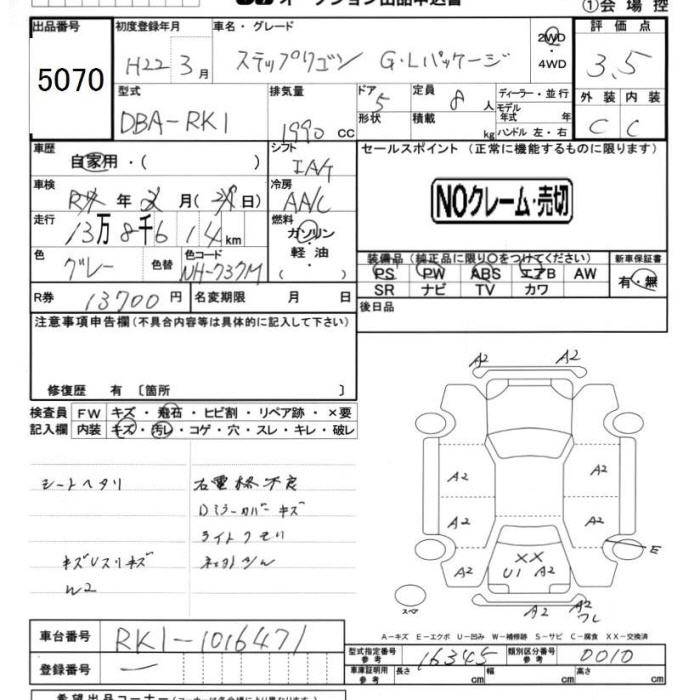 オークション出品申込書
①会場控
出品番号 初度登録年月 車名・グレード 評価点
5070 H22 3月 ステップワゴン G・Lパッケージ 2WD 4WD 3.5
型式 排気量 ドア 定員 ディーラー・並行 外装 内装
DBA-RK1 1990 cc 5 8人 モデル年式 年 C C
形状 積載 kg ハンドル 左・右
車歴 シフト セールスポイント (正常に機能するものに限ります)
自家用・( ) IAT
車検 冷房 NOクレーム・売切
年 月( 日) AAC
走行 燃料
13万8千614km ガソリン・軽油 ( )
色 色替 色コード 装備品(純正品に限り○をつけてください) 新車保証書
グレー NH-737M PS PW ABS エアB AW 有・無
SR ナビ TV カワ
R券 13700円 名変期限 月 日 後日品
注意事項申告欄(不具合内容等は具体的に記入して下さい)
修復歴 有 〔箇所 〕
検査員 FW キズ・飛石・ヒビ割・リペア跡・×要
記入欄 内装 キズ・汚レ・コゲ・穴・スレ・キレ・破レ
シートヘタリ 右電格不良
Dミラーカバーキズ
ライトクモリ
キズUスリキズ
W2
A2 A2
A2 A2
A2 A2
E
XX
A2 U1 A2 A2
スペア A2 A2
ワレ
A-キズ E-エクボ U-凹み W-補修跡 S-サビ C-腐食 XX-交換済
車台番号 RK1-1016471
型式指定番号 参考 16345 類別区分番号 参考 0010
登録番号 —
車庫証明用 参考 長さ cm 幅 cm 高さ cm
希望出品コーナー